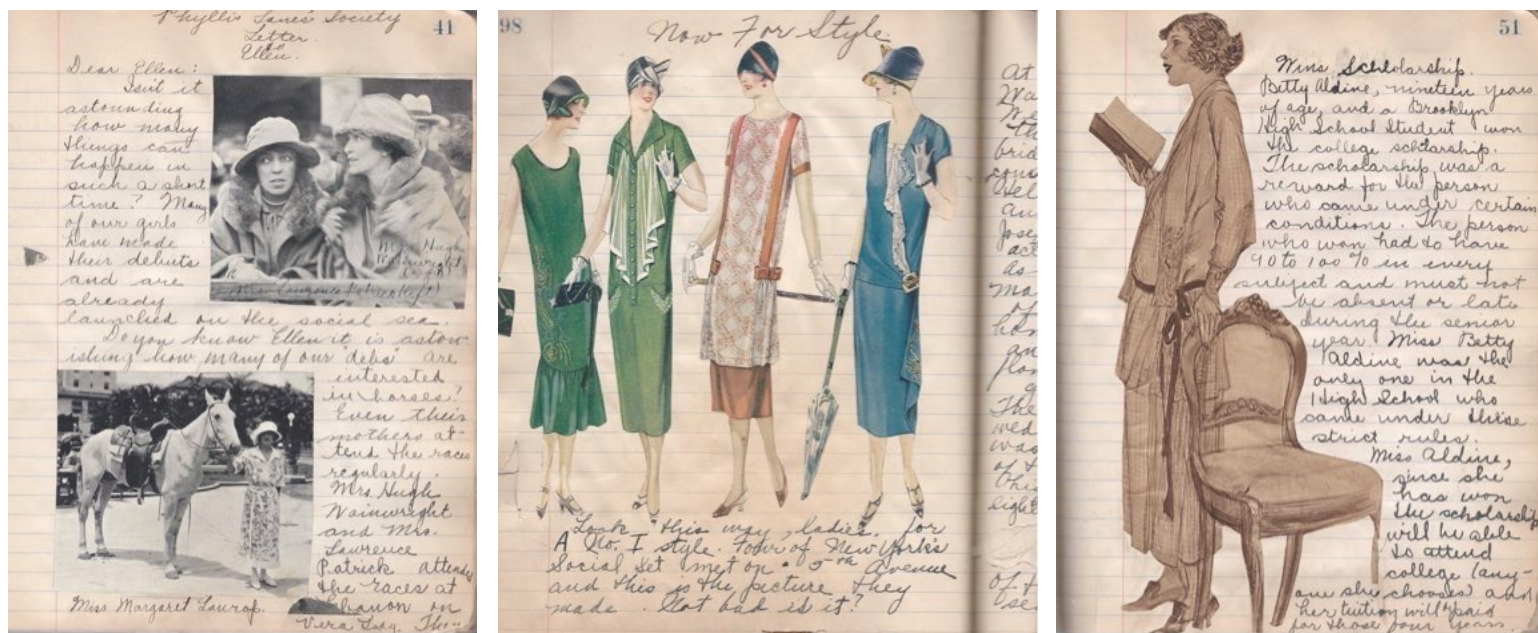 41
Phyllis Lane's Society
Letter
to
Ellen.
Dear Ellen:
Isn't it
astounding
how many
things can
happen in
such a short
time? Many
of our girls
have made
their debuts
and are
already
launched on the social sea.
Do you know Ellen it is aston-
ishing how many of our "debs" are
interested
in horses?
Even their
mothers at-
tend the races
regularly.
Mrs. Hugh
Wainwright
and Mrs.
Lawrence
Patrick attended
the races at
on
Mrs. Hugh
Wainwright
(right)
Mrs. Lawrence Patrick (left)
Miss Margaret
Vera
98
Now For Style
Look this way, ladies, for
A No. I style. Four of New York's
Social Set met on 5th Avenue
and this is the picture they
made. Not bad is it?
At
Wa
th
brid
au
Jose
act
as
Ma
of
The
wed
was
of t
this
light
Of t
se
51
Wins Scholarship.
Betty Aldine, nineteen years
of age, and a Brooklyn
High School Student won
the college scholarship.
The scholarship was a
reward for the person
who came under certain
conditions. The person
who won had to have
90 to 100% in every
subject and must not
be absent or late
during the senior
year. Miss Betty
Aldine was the
only one in the
High School who
came under these
strict rules.
Miss Aldine,
since she
has won
the scholarship
will be able
to attend
college (any-
one she chooses) and
her tuition will be paid
for those four years.